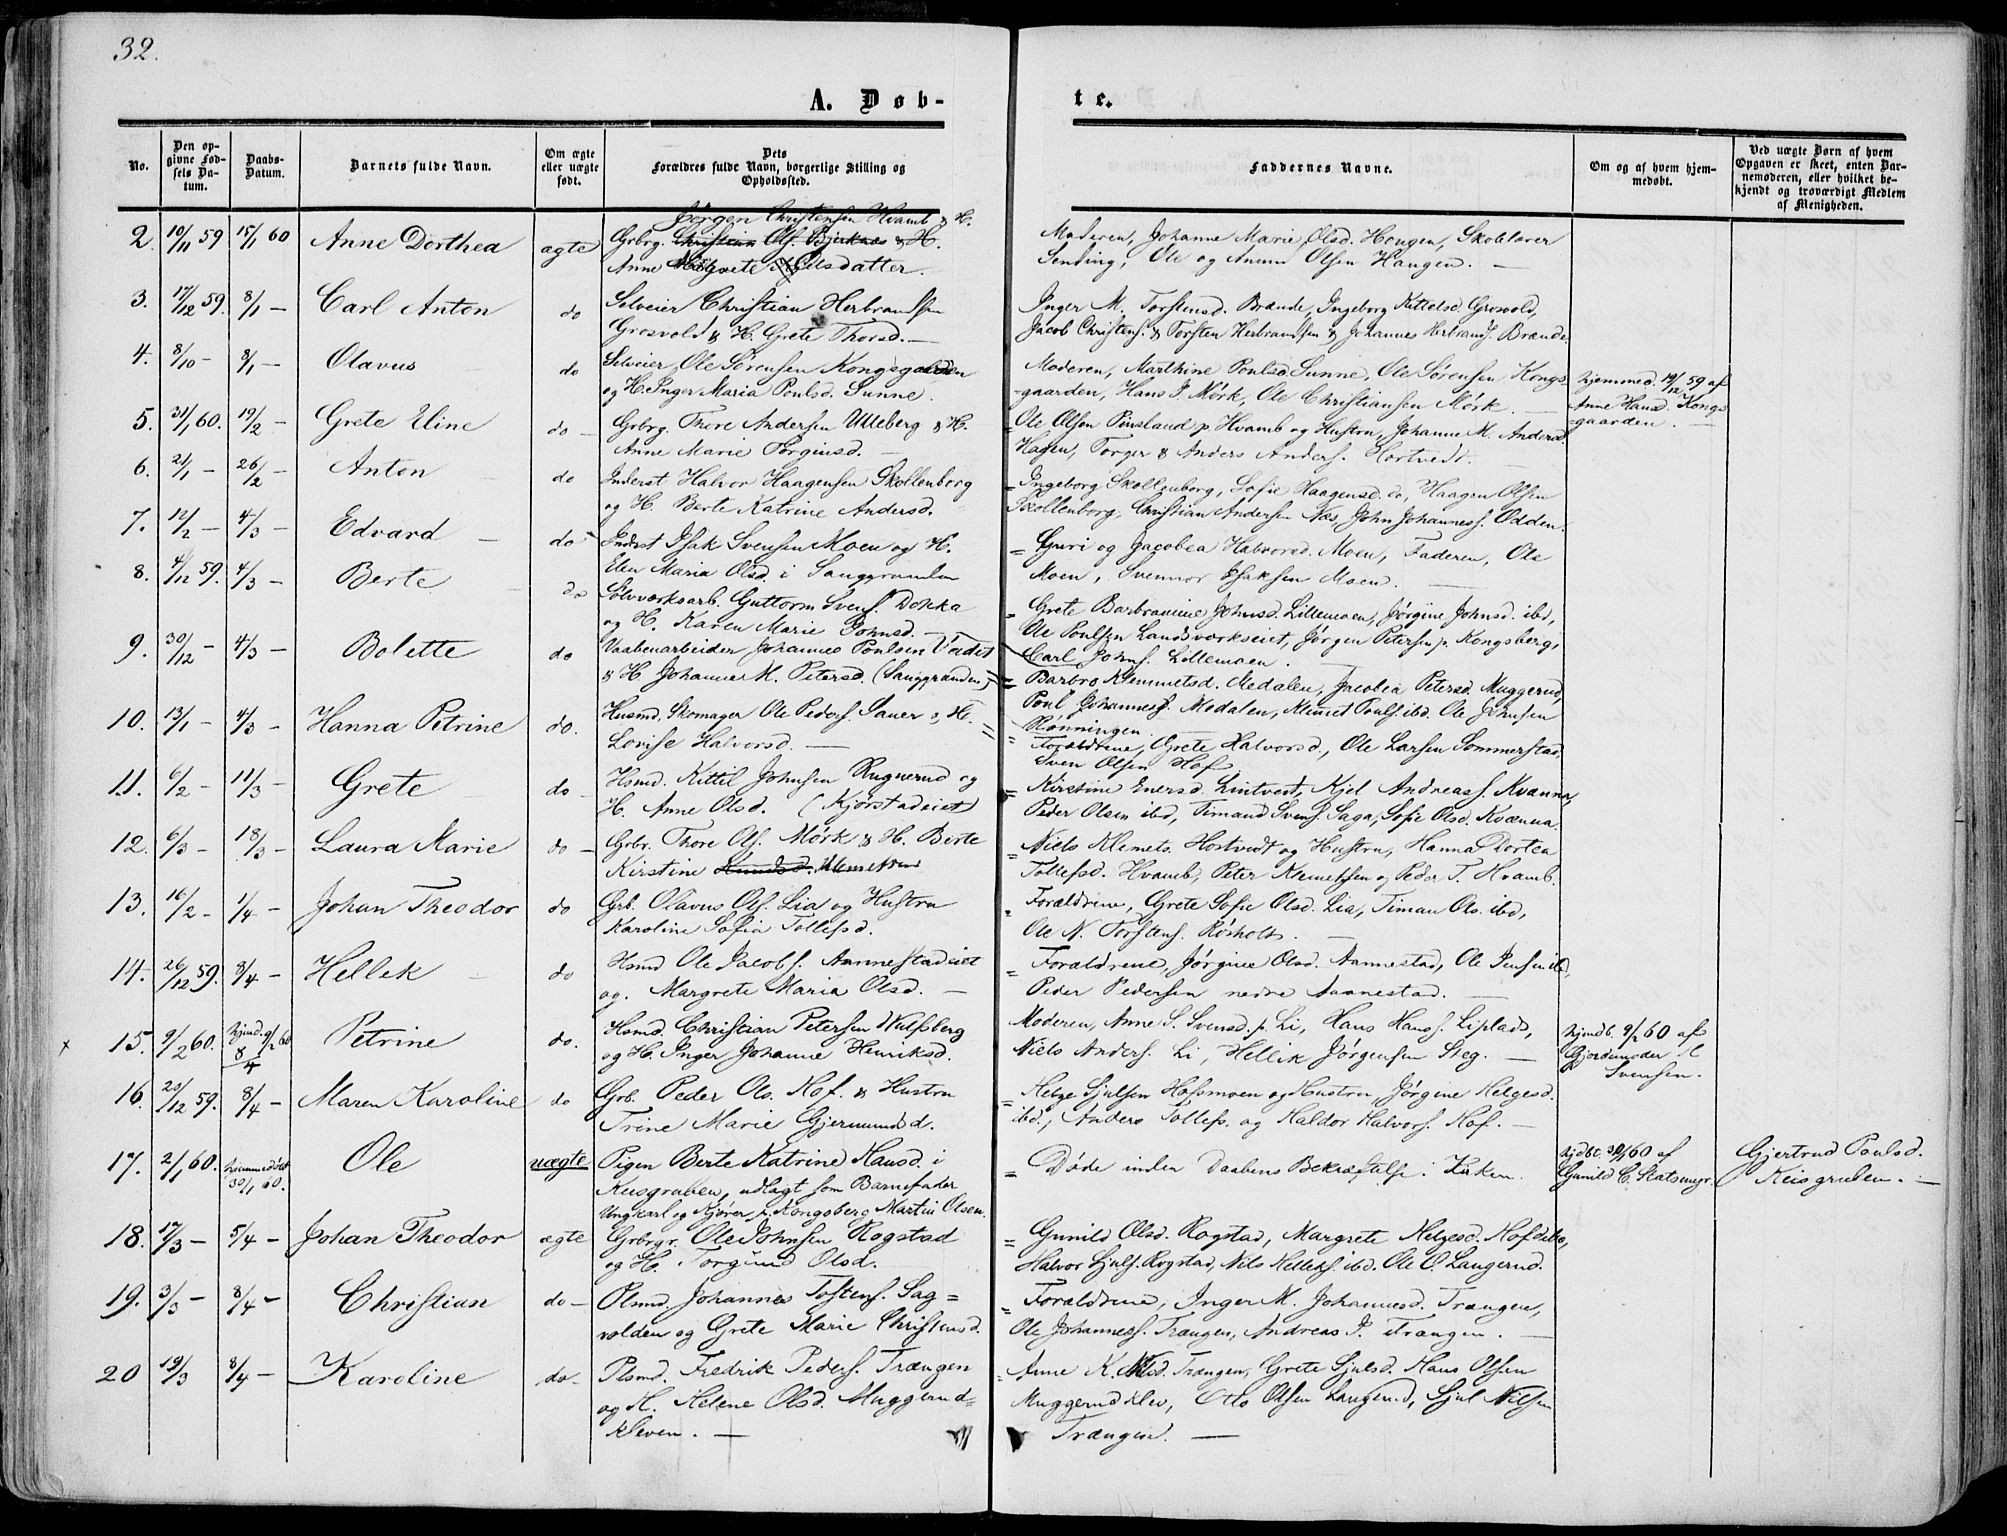 32.
A. Døb-
te.
No.
Den op-
givne Fød-
sels Da-
tum.
Daabs-
Datum.
Barnets fulde Navn.
Om ægte
eller uægte
født.
Dets
Forældres fulde Navn, borgerlige Stilling og
Opholdssted.
Faddernes Navne.
Om og af hvem hjem-
medøbt.
Ved uægte Børn af hvem
Opgaven er skeet, enten Bar-
nemoderen, eller hvilket be-
kjendt og troværdigt Medlem
af Menigheden.
2. 10/11 59 15/1 60 Anne Dorthea ægte
Jørgen Christensen Hvamb & H.
Grbrg. Christian Ols. Bjerknes & H.
Anne Margrete Nilsdatter.
Moderen, Johanne Marie Olsd. Hougen, Skolelærer
Sending, Ole og Anun Olsen Haugen. —
3. 17/12 59. 8/1 — Carl Anton do
Selveier Christian Herbrandsen
Grosvold & H. Grete Thorsd. —
Inger M. Torstensd. Brænde, Ingeborg Kittelsd. Grosvold,
Jacob Christens. & Torsten Herbrandsen & Johannes Herbrands. Brænde
4. 8/10 — 8/1 — Olavus do
Selveier Ole Sørensen Kongsgaarden
og H. Inger Maria Poulsd. Sunne.
Moderen, Marthine Poulsd. Sunne, Ole Sørensen Kongs-
gaarden, Hans P. Mørk, Ole Christiansen Mørk. —
hjemmed. 19/12 59 af
Anne Hansd. Kongs-
gaarden. —
5. 31/1 60. 19/2 — Grete Eline do —
Grbrg. Thore Andersen Ulleberg & H.
Anne Marie Torginsd. —
Ole Olsen Pinsland p. Hvamb og Hustru, Johanne M. Andersd.
Hagen, Torger & Anders Anders. Hortvedt.
6. 21/1 — 26/2 — Anton do
Inderst Halvor Haagensen Skollenborg
og H. Berte Katrine Andersd.
Ingeborg Skollenborg, Sofie Haagensd. do, Haagen Olsen
Skollenborg, Christian Andersen Næs, John Johanness. Odden.
7. 12/2 — 4/3 — Edvard — do
Inderst Isak Svensen Moen og H.
Elen Maria Olsd. i Sanggrunden
= Guri og Jacobea Halvorsd. Moen, Faderen, Ole
Moen, Svennor Isaksen Moen.
8. 4/12 59. 4/3 — Berte do
Sølvværksarb. Guttorm Svens. Dokka
og H. Karen Marie Johnsd. —
Grete Barbramine Johnsd. Lillemoen, Jørgine Johnsd. ibd,
Ole Poulsen Landsværkseiet, Jørgen Petersen p. Kongsberg,
Carl Johns. Lillemoen. —
9. 30/12 — 4/3 — Bolette do
Vaabenarbeider Johannes Poulsen Vadet
& H. Johanne M. Petersd. (Sanggrunden)
= Barbro Klemmetsd. Medalen, Jacobea Petersd. Muggerud,
Poul Johanness. Modalen, Klemet Pouls. ibd. Ole Johnsen
Rønningen.
10. 13/1 — 4/3 — Hanna Petrine do.
Husmd. Skomager Ole Peders. Sauer & H. =
Lovise Halvorsd. —
Forældrene, Grete Halvorsd., Ole Larsen Sommerstad,
Sven Olsen Hof
11. 6/2 — 11/3 — Grete do —
Hsmd. Kittil Johnsen Rugnerud og
H. Anne Olsd. (Kjørstadeiet)
= Kirstine Enersd. Lintvedt, Kjel Andreass. Kvænna,
Peder Olsen ibd, Timand Svens. Saga, Sofie Olsd. Kvænna.
12. 6/3 — 18/3 — Laura Marie do —
Grbr. Thore Ols. Mørk & H. Berte
Kirstine
= Niels Klemets. Hostvedt og Hustru, Hanna Dortea
Tollefsd. Hvamb, Peter Klemetsen og Peder T. Hvamb.
13. 16/2 — 1/4 — Johan Theodor do
Grb. Olavus Ols. Lia og Hustru
Karoline Sofia Tollefsd.
Forældrene, Grete Sofie Olsd. Lia, Timan Ols. ibd,
Ole N. Torstens. Røsholt. —
14. 26/12 59. 8/4 — Hellek do
Hsmd Ole Jacobs. Aannestadeiet
og. Margrete Maria Olsd. —
= Forældrene, Jørgine Olsd. Aannestad, Ole Jensen ibd,
Peder Pedersen nedre Aannestad. —
x 15. 9/2 60. hjmd. 9/2 60 8/4 Petrine do.
Hsmd. Christian Petersen Wulfsberg
og H. Inger Johanne Henriksd.
Moderen, Anne S. Svensd. p. Li, Hans Hans. Liplads,
Niels Anders. Li, Hellik Jørgensen Steg. —
hjmdb. 9/2 60 af
Gjordemoder
Svensen.
16. 20/12 59. 8/4 — Maren Karoline do
Grb. Peder Ols. Hof. & Hustru
Trine Marie Gjermundsd.
= Helge Sjulsen Hofsmoen og Hustru Jørgine Helgesd.
ibd., Anders Tollefs. og Haldor Halvors. Hof. —
17. 2/1 60. hjemmedøbt 30/1 60. Ole uægte
Pigen Berte Katrine Hansd. i
Keisgruben, udlagt som Barnefader
Ungkarl og Kjører p. Kongsberg Martin Olsen.
= Døde inden Daabens Bekræftelse i Kirken.
hjdbt. 30/1 60 af
Gunild C. Statsengr.
Gjertrud Poulsd.
Keisgruben. —
18. 17/3 — 5/4 — Johan Theodor ægte
Grbrgr. Ole Johnsen Rogstad
og H. Torgund Olsd.
= Gunild Olsd. Rogstad, Margrete Helgesd. Hof ditto,
Halvor Sjuls. Rogstad, Nils Helliks. ibd. Ole O. Langerud.
19. 3/3 — 8/4 — Christian do —
Plsmd. Johannes Tostens. Sag=
volden og Grete Marie Christensd.
= Forældrene, Inger M. Johannesd. Trængen,
Ole Johanness. Trængen, Andreas J. Trængen. —
20 19/3 8/4 — Karoline do —
Plsmd. Fredrik Peders. Trængen
og H. Helene Olsd. Muggerud=
kleven. —
Anne K. Nilsd. Trængen, Grete Sjulsd. Hans Olsen
Muggerudklev, Otto Olsen Langerud, Sjul Nilsen
Trængen. —